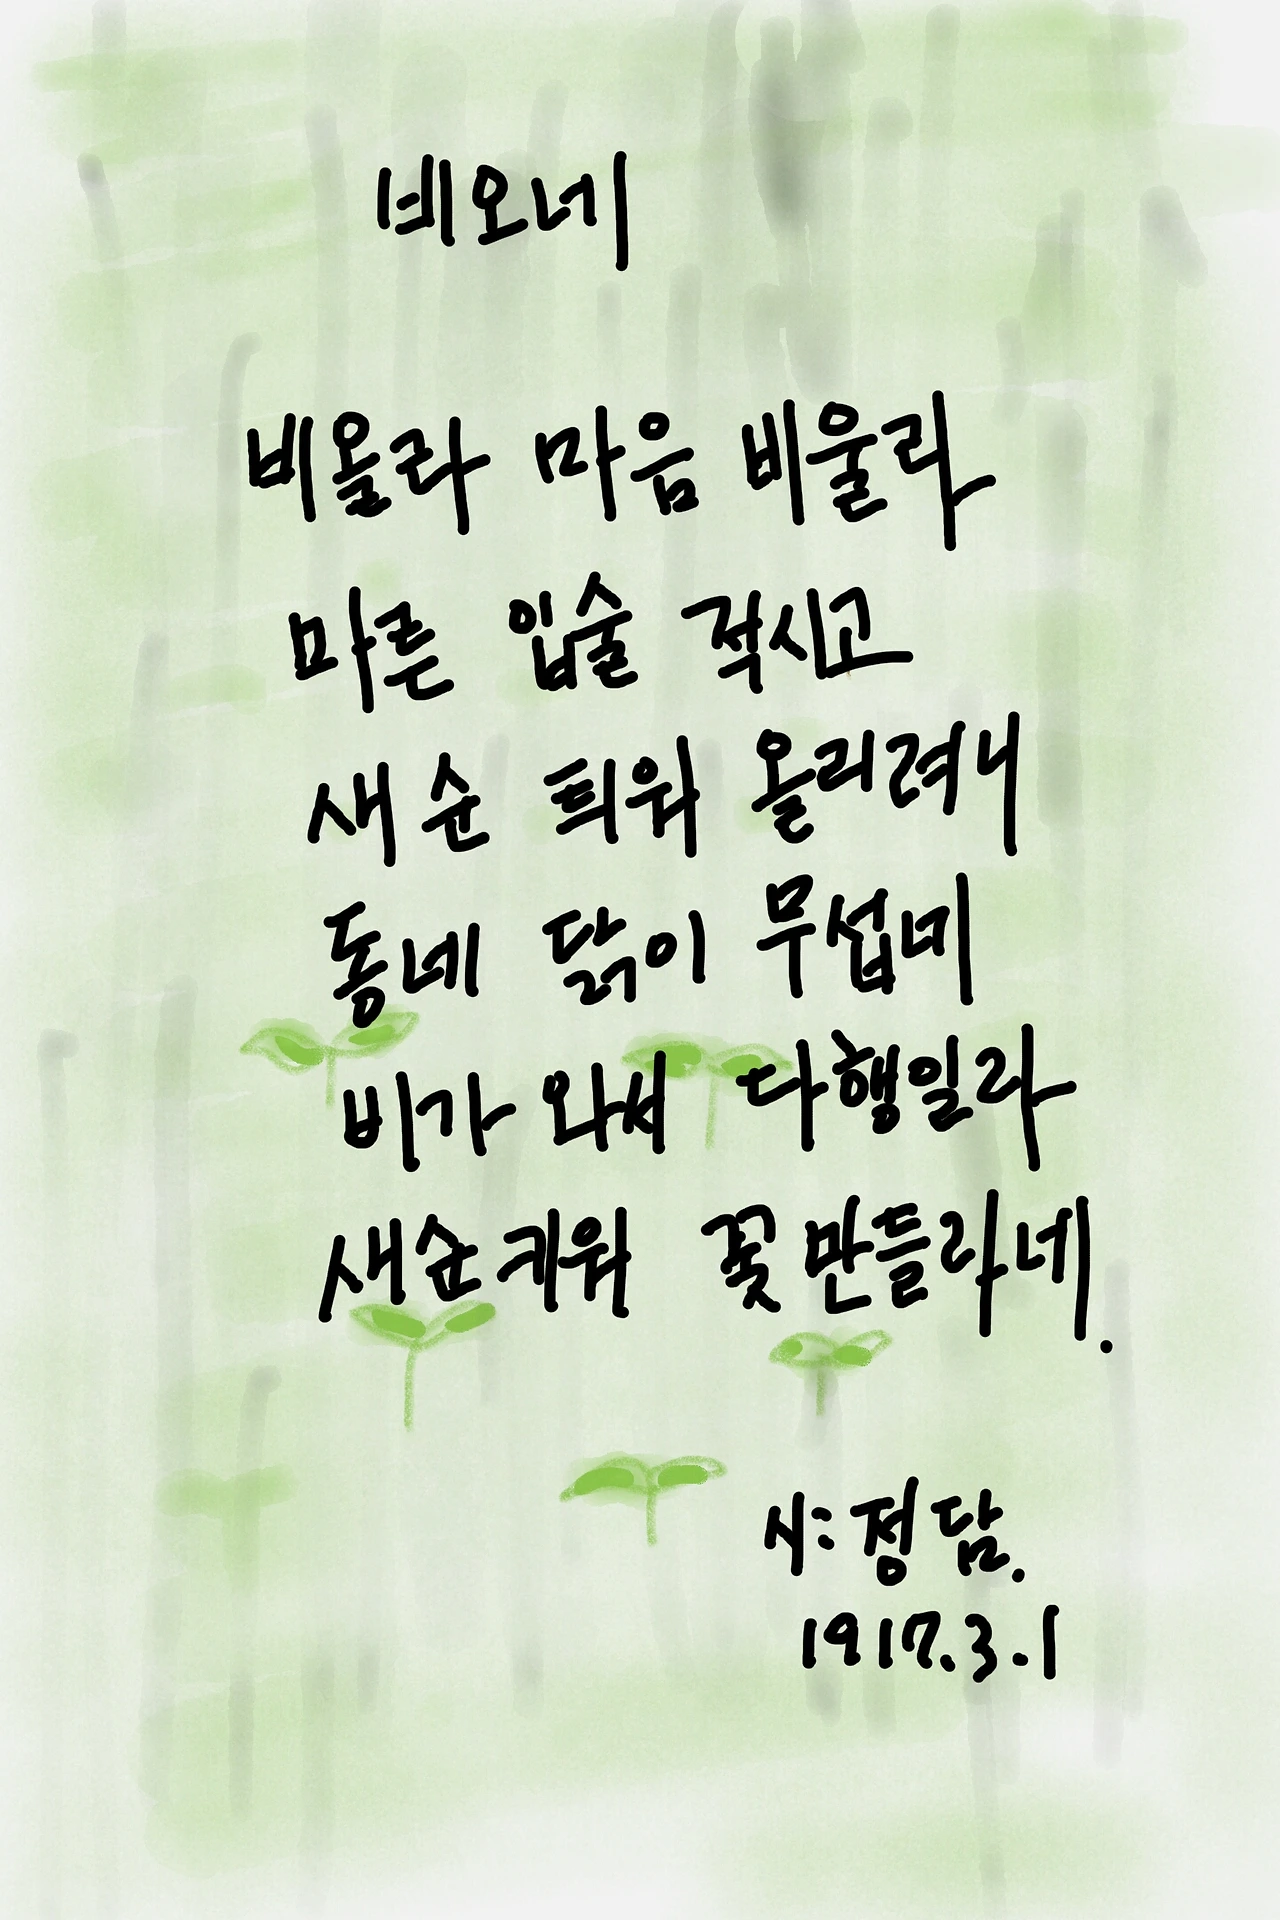 비오네
비올라 마음 비울라
마른 입술 적시고
새순 틔워 올리려니
동네 닭이 무섭네
비가 와서 다행일라
새순키워 꽃만들라네.
시: 정담.
1917.3.1